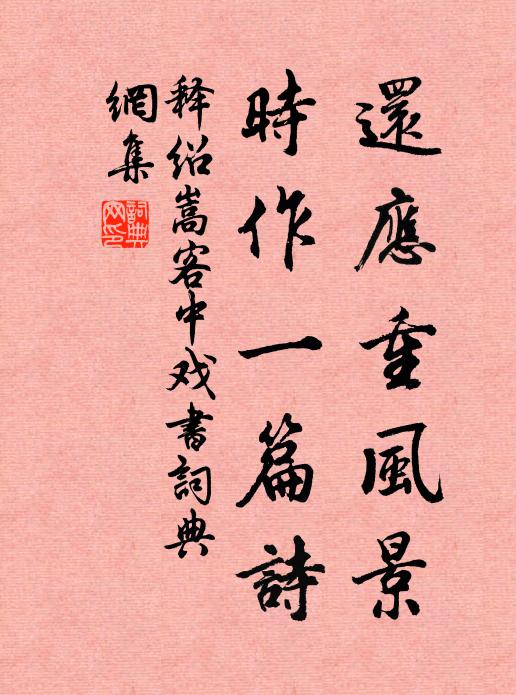 還應重風景
時作一篇詩
释绍嵩客中戏書詞典
網集
詞典網印